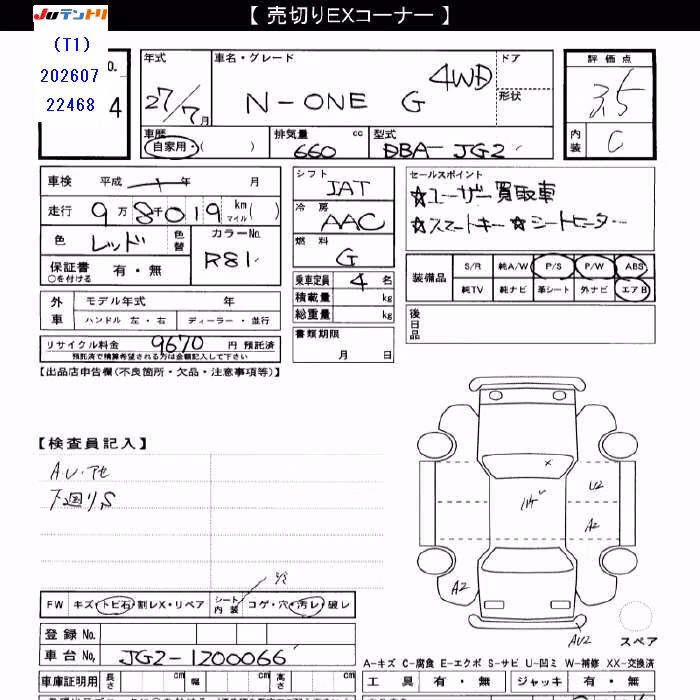 【 売切りEXコーナー 】
JUテントリ
(T1)
202607
22468
o.
4
年式 車名・グレード ドア
27/7月 N-ONE G 4WD 形状
評価点
3.5
内装 C
車歴 排気量 cc 型式
自家用・( ) 660 DBA-JG2
車検 平成 ー年 月
走行 9万8千019 km マイル ( )
色 レッド 色替 カラーNo. R81
保証書 有・無
○を付ける
外車 モデル年式 年
ハンドル 左・右 ディーラー・並行
リサイクル料金 9670 円 預託済
預託済で積算希望される方は金額記入して下さい
シフト IAT
冷房 AAC
燃料 G
乗車定員 4 名
積載量 kg
総重量 kg
書類期限
月 日
セールスポイント
☆ユーザー買取車
☆スマートキー ☆シートヒーター…
装備品 S/R 純A/W P/S P/W ABS
純TV 純ナビ 革シート 外ナビ エアB
後日品
【出品店申告欄(不良箇所・欠品・注意事項等)】
【検査員記入】
A.U.アセ
下廻りS
FW キズ・トビ石・割レX・リペア シート内装 コゲ・穴・汚レ・破レ
登録No.
車台No. JG2-1200066
車庫証明用 長さ cm 幅 cm 高さ cm
U2
A2
A2
AU2
スペア
A-キズ C-腐食 E-エクボ S-サビ U-凹ミ W-補修 XX-交換済
工具 有・無 ジャッキ 有・無